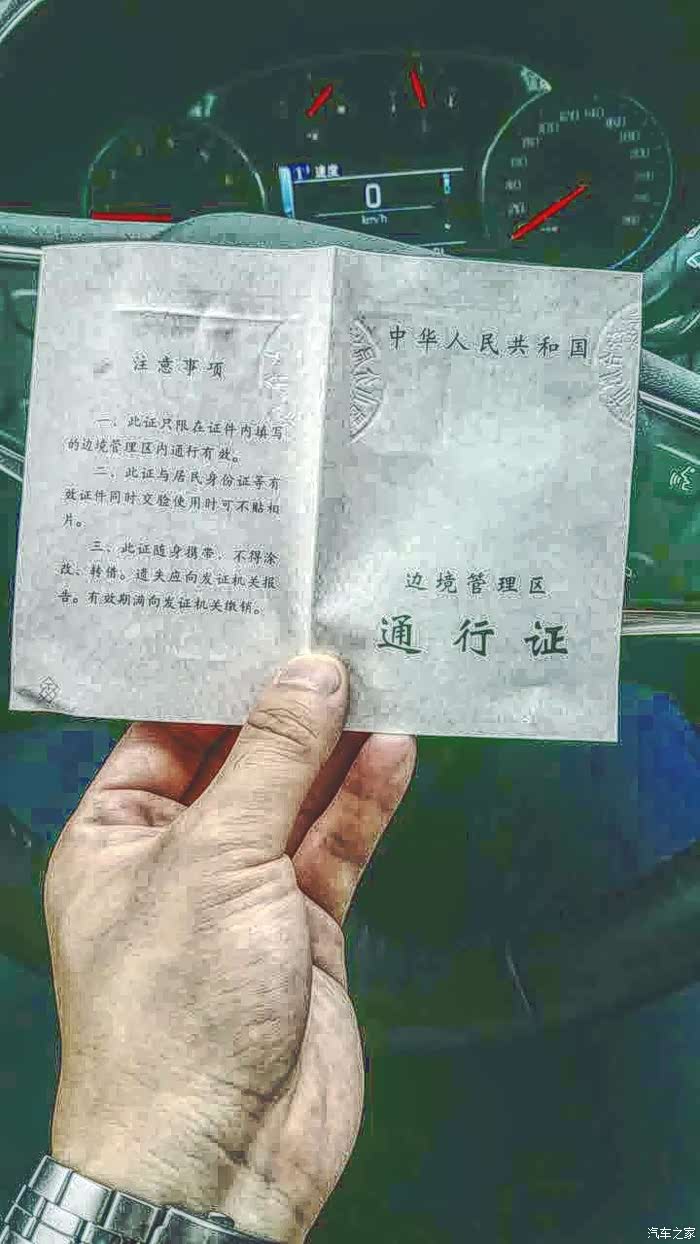 速度
0
km/h
注意事项
一、此证只限在证件内填写
的边境管理区内通行有效。
二、此证与居民身份证等有
效证件同时交验使用时可不贴相
片。
三、此证随身携带，不得涂
改、转借。遗失应向发证机关报
告。有效期满向发证机关缴销。
中华人民共和国
边境管理区
通行证
汽车之家